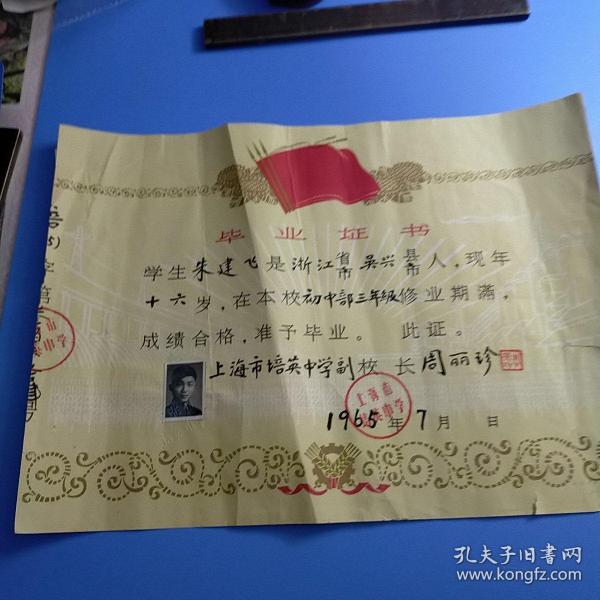 毕业证书
学生朱建飞是浙江省市吴兴县市人，现年
十六岁，在本校初中部三年级修业期满，
成绩合格，准予毕业。 此证。
上海市培英中学副校长周丽珍
上海市培英中学
1965年7月 日
孔夫子旧书网
www.kongfz.com